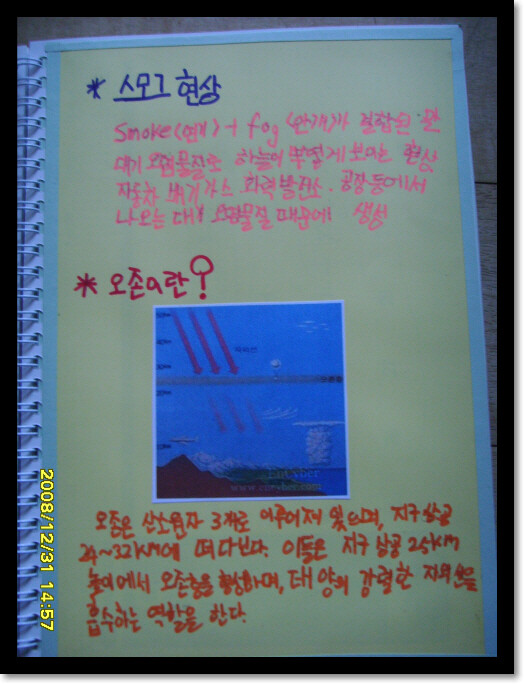 * 스모그 현상
Smoke(연기) + fog (안개)가 결합된 말
대기 오염물질로 하늘이 뿌옇게 보이는 현상
자동차 배기가스, 화력발전소, 공장등에서
나오는 대기 오염물질 때문에 생성
* 오존이란?
자외선
오존층
www.envyber.com
오존은 산소원자 3개로 이루어져 있으며, 지구 상공
24~32KM에 떠다닌다. 이들은 지구 상공 25KM
높이에서 오존층을 형성하며, 태양의 강렬한 자외선을
흡수하는 역할을 한다.
2008/12/31 14:57